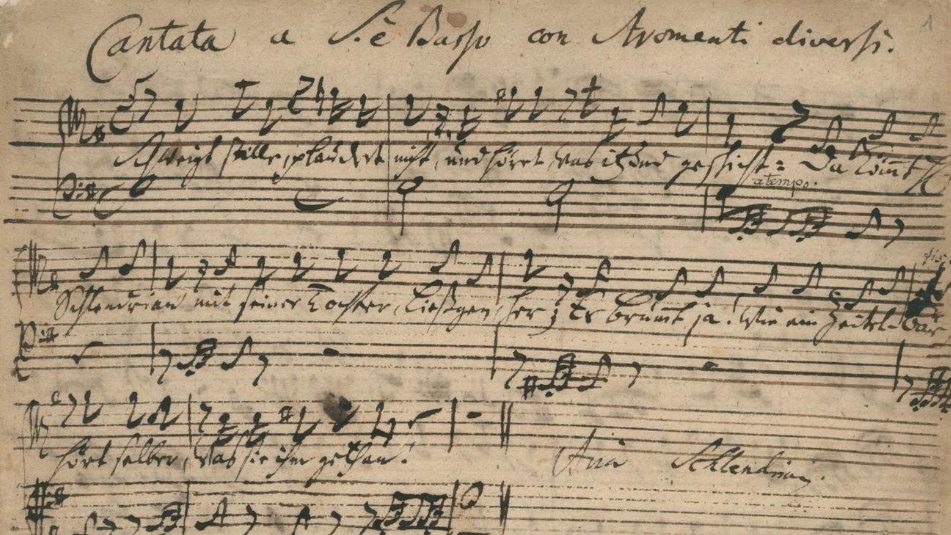 Cantata a S. è Basso con Stromenti diversi.
1
Schweigt stille, plaudert nicht, und höret was itzund geschicht: Da kömt H
a tempo:
Schlendrian mit seiner Tochter, Ließgen, her; Er brumt ja, wie ein Zeitel-Bär
hört selber, was sie ihm gethan!
Aria Schlendrian.